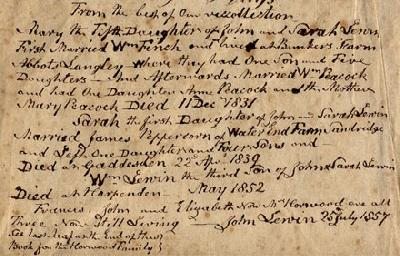 From the best of our recollection
Mary the Fifth Daughter of John and Sarah Lewin
First Married Wm Finch and lived at Bunkers Farm
Abbots Langley where they had One Son and Five
Daughters – And Afterwards Married Wm Peacock
and had One Daughter Anne Peacock and the Mother
Mary Peacock Died 11 Dec 1831
Sarah the first Daughter of John and Sarah Lewin
Married James Peppercorn of Water End Farm Sandridge
and Left One Daughter and Four Sons and –
Died in Gaddesden 22 Apr 1839
Wm Lewin the third Son of John & Sarah Lewin
Died at Harpenden May 1852
Francis John and Elizabeth Now Mrs Horwood are all
Three Now Still Living – John Lewin 25 July 1857
See last leaf at the End of this
Book for the Horwood Family